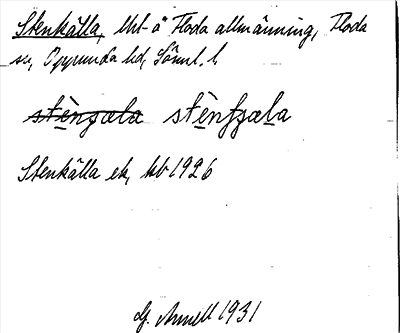 Stenkälla, lht å Floda allmänning, Floda
sn, Oppunda hd, Söml. l
stèngæla stènfgæla
Stenkälla ek, kb 1926
G. Arnell 1931